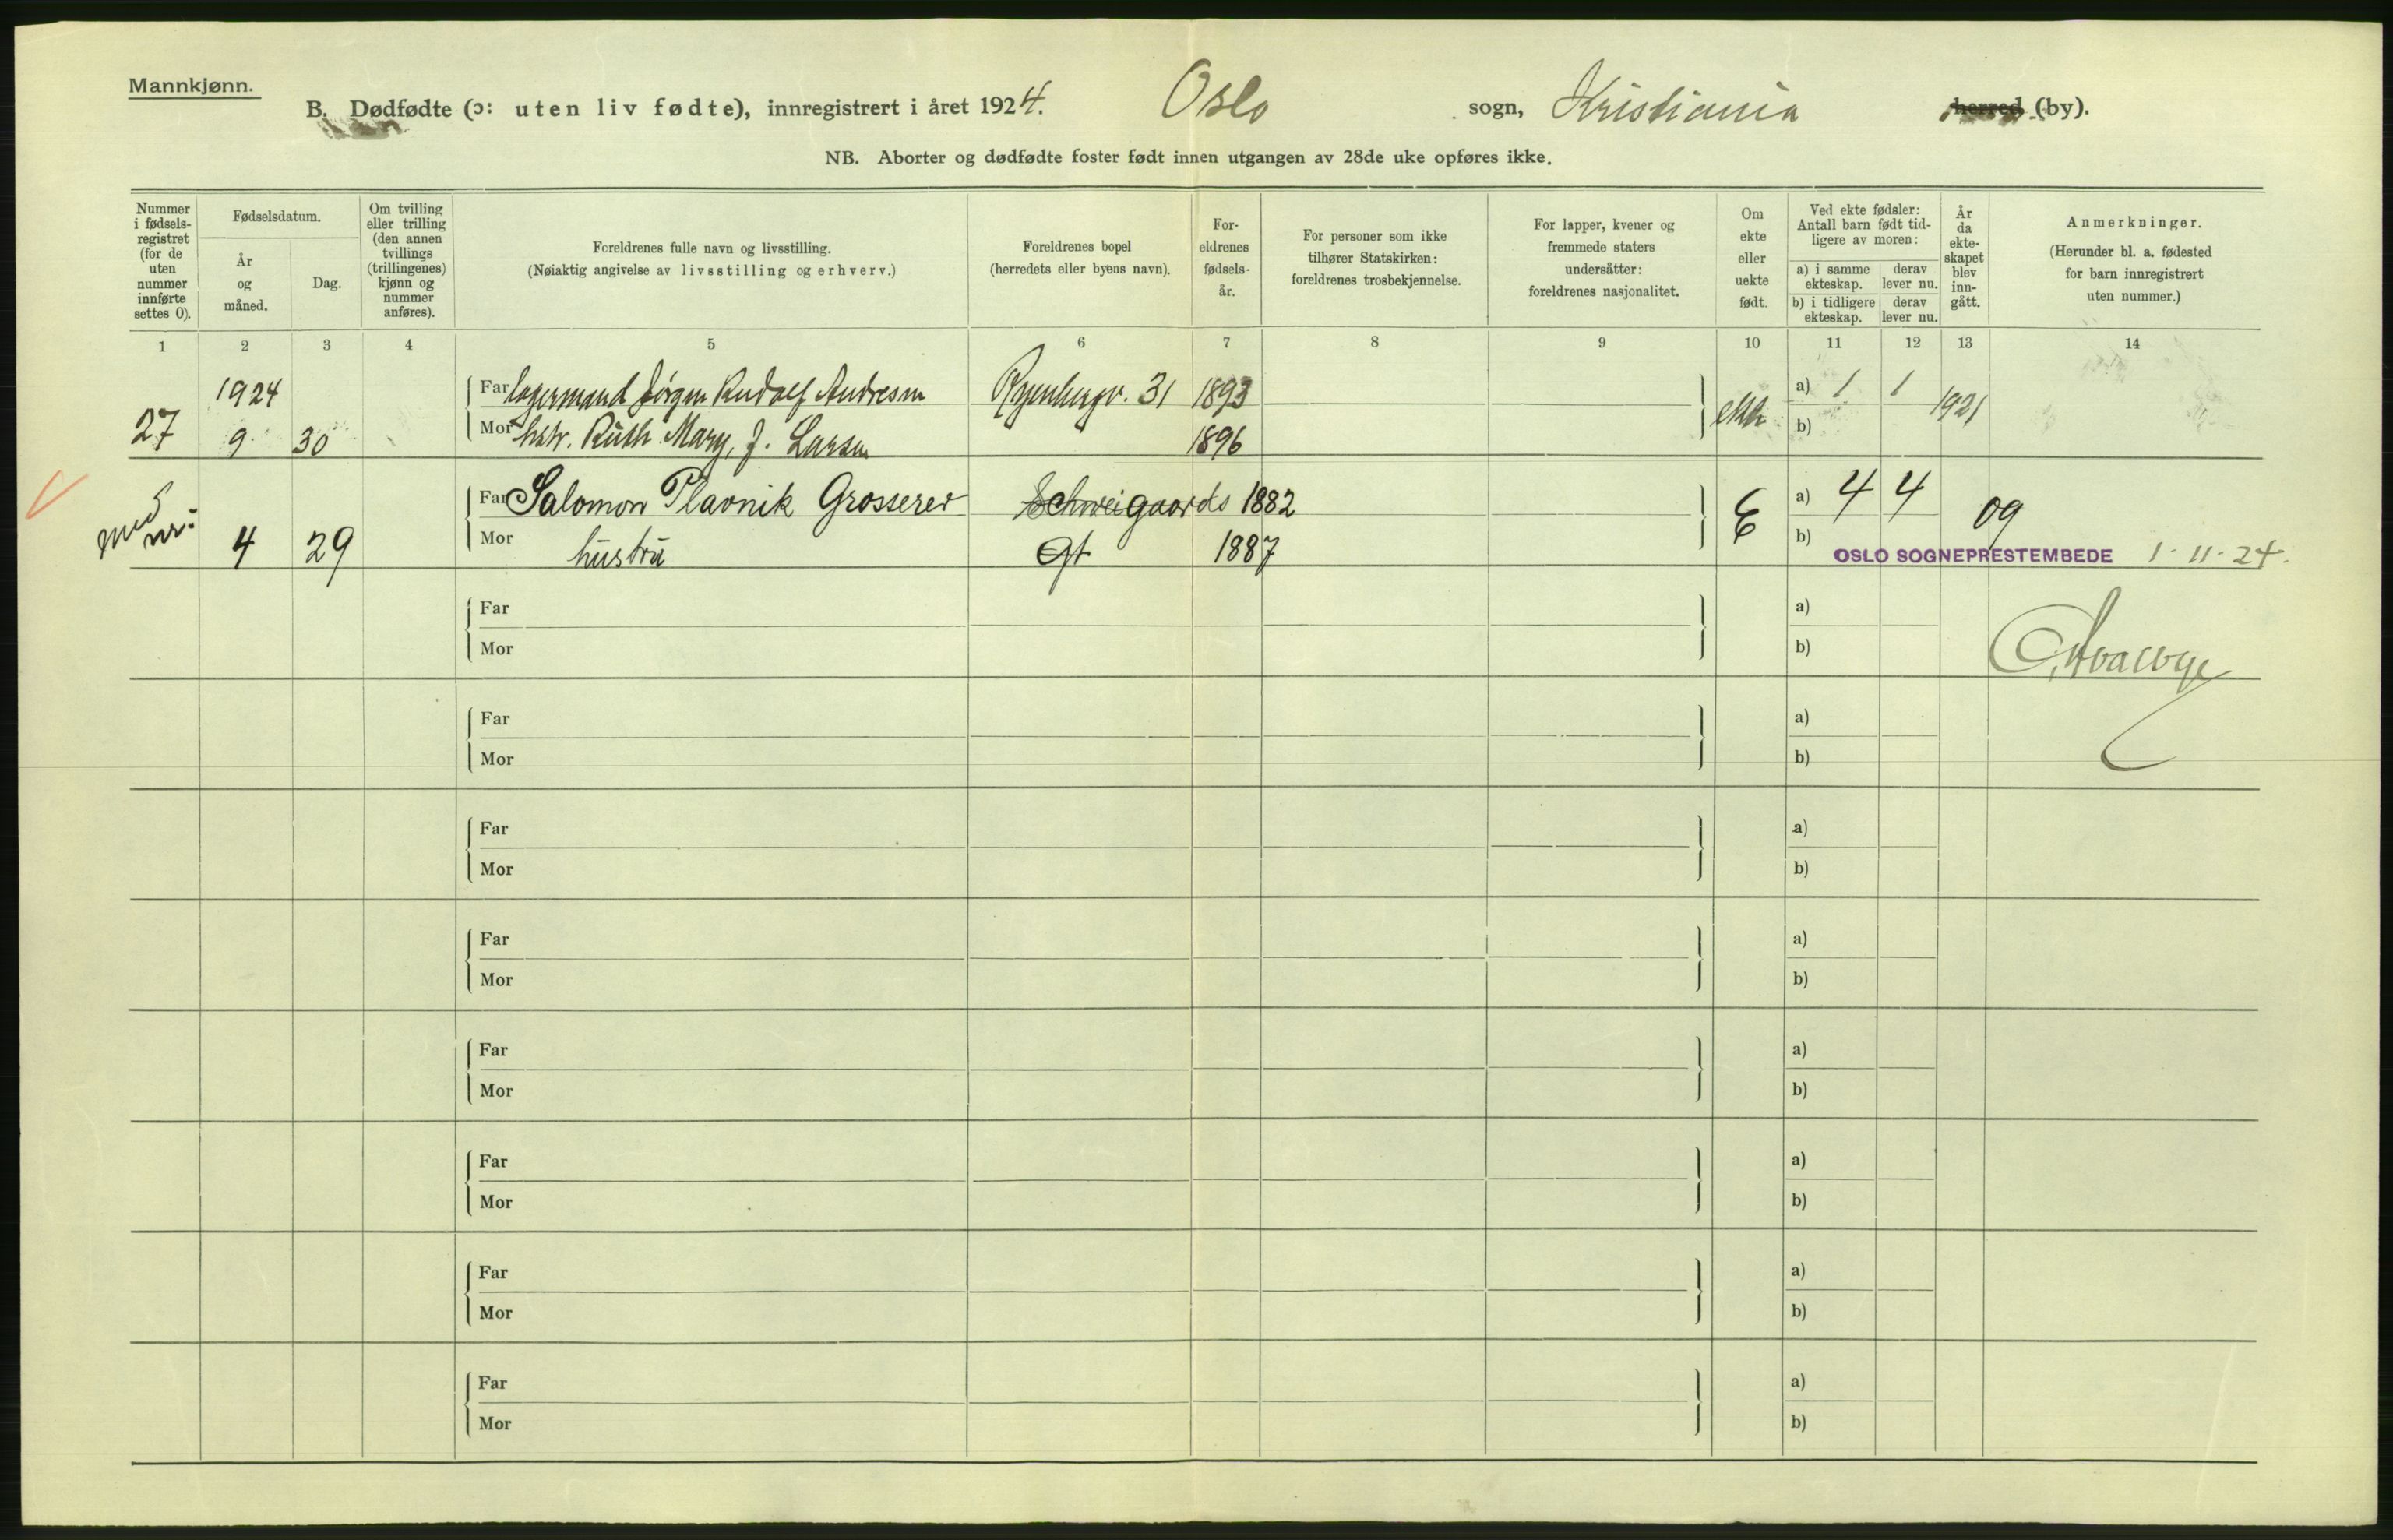 Mannkjønn.
B. Dødfødte (ɔ: uten liv fødte), innregistrert i året 1924. Oslo sogn, Kristiania herred (by).
NB. Aborter og dødfødte foster født innen utgangen av 28de uke opføres ikke.
Nummer i fødsels-registret (for de uten nummer innførte settes 0).
Fødselsdatum.
År og måned.
Dag.
Om tvilling eller trilling (den annen tvillings (trillingenes) kjønn og nummer anføres).
Foreldrenes fulle navn og livsstilling.
(Nøiaktig angivelse av livsstilling og erhverv.)
Foreldrenes bopel
(herredets eller byens navn).
For-eldrenes fødsels-år.
For personer som ikke tilhører Statskirken: foreldrenes trosbekjennelse.
For lapper, kvener og fremmede staters undersåtter: foreldrenes nasjonalitet.
Om ekte eller uekte født.
Ved ekte fødsler: Antall barn født tid-ligere av moren:
a) i samme ekteskap.
derav lever nu.
b) i tidligere ekteskap.
derav lever nu.
År da ekte-skapet blev inn-gått.
Anmerkninger.
(Herunder bl. a. fødested for barn innregistrert uten nummer.)
1 2 3 4 5 6 7 8 9 10 11 12 13 14
1924
Far lagermand Jørgen Rudolf Andresen 31 1893
a) 1 1 1921
27 9 30 Mor hstr. Ruth Mary, f. Larsen 1896 ekte b)
Far Salomon Plavnik Grosserer Schweigaards 1882 E a) 4 4 09
4 29 Mor hustru gt 1887 b)
OSLO SOGNEPRESTEMBEDE 1-11-24.
Far a)
Mor b)
Far a)
Mor b)
Far a)
Mor b)
Far a)
Mor b)
Far a)
Mor b)
Far a)
Mor b)
Far a)
Mor b)
Far a)
Mor b)